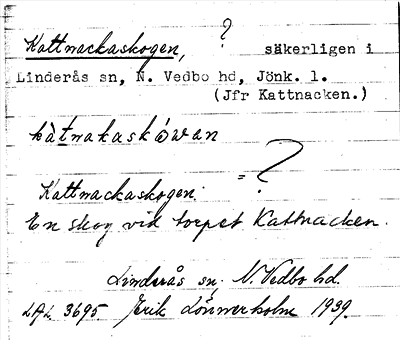 ?
Kattnackaskogen, säkerligen i
Linderås sn, N. Vedbo hd, Jönk. l.
(Jfr Kattnacken.)
kàtnakaskówan
= ?
Kattnackaskogen:
En skog vid torpet Kattnacken.
Linderås sn, N. Vedbo hd.
LAL 3695. Erik Lönnerholm 1939.